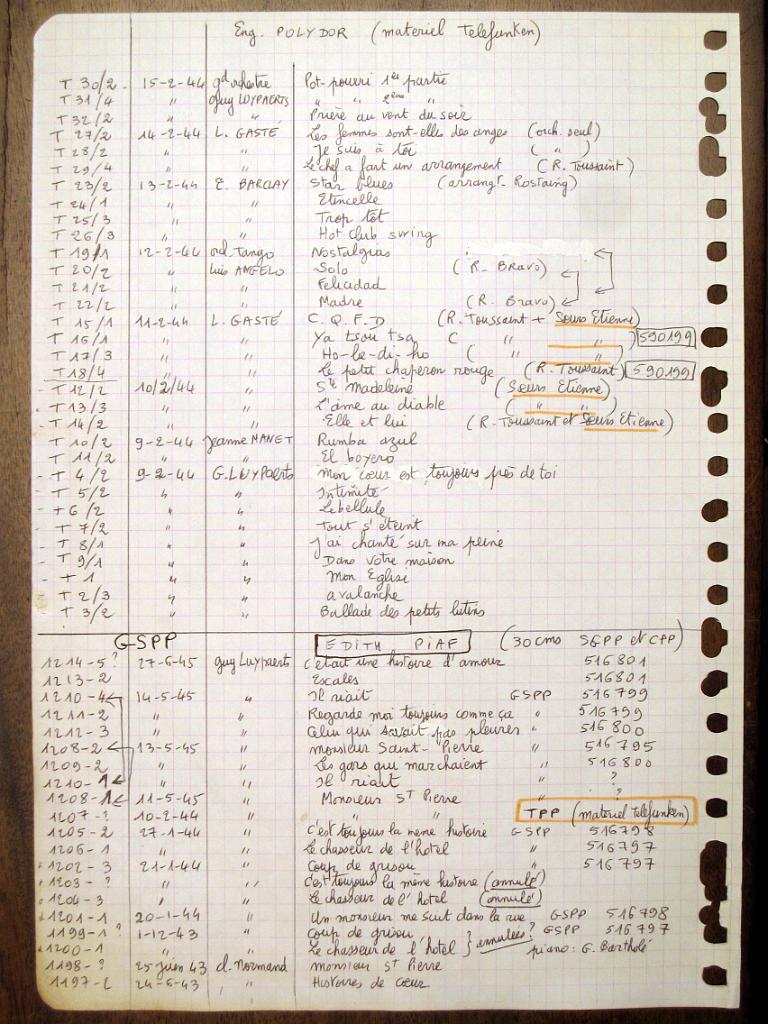 Eng. POLYDOR (materiel Telefunken)
T 30/2 15-2-44 gd orchestre Pot-pourri 1ère partie
T 31/4 " guy LUYPAERTS " " 2ème "
T 32/2 " Prière au vent du soir
T 27/2 14-2-44 L. GASTÉ Les femmes sont-elles des anges (orch. seul)
T 28/2 " " Je suis à toi ( " )
T 29/4 " " Le chef a fait un arrangement (R. Toussaint)
T 23/2 13-2-44 E. BARCLAY Star blues (arrangt. Rostaing)
T 24/1 " " Etincelle
T 25/3 " " Trop tôt
T 26/3 " " Hot club swing
T 19/1 12-2-44 od. Tango Nostalgias
T 20/2 " luis ANGELO Solo (R. Bravo)
T 21/2 " " Felicidad
T 22/2 " " Madre (R. Bravo)
T 15/1 11-2-44 L. GASTÉ C. Q. F. D (R. Toussaint + Sœurs Etienne)
T 16/1 " " Ya tsou tsa ( " ) 590199
T 17/3 " " Ho-le-di-ho ( " " )
T 18/4 " " Le petit chaperon rouge (R. Toussaint) 590199
- T 12/2 10/2/44 " Ste Madeleine (Sœurs Etienne)
- T 13/3 " " L'âme au diable ( " " )
- T 14/2 " " Elle et lui (R. Toussaint et Sœurs Etienne)
T 10/2 9-2-44 Jeanne MANET Rumba azul
T 11/2 " " El boyero
- T 4/2 9-2-44 G. LUYPaerts Mon cœur est toujours près de toi
- T 5/2 " " Intimité
- T 6/2 " " Libellule
- T 7/2 " " Tout s'éteint
- T 8/1 " " J'ai chanté sur ma peine
- T 9/1 " " Dans votre maison
- T 1 " " Mon Eglise
- T 2/3 " " avalanche
- T 3/2 " " Ballade des petits lutins
GSPP EDITH PIAF (30cms SGPP et CPP)
1214-5? 27-6-45 guy Luypaerts C'était une histoire d'amour 516801
1213-2 " Escales 516801
1210-4 14-5-45 " Il riait GSPP 516799
1211-2 " " Regarde moi toujours comme ça " 516799
1212-3 " " Celui qui savait pas pleurer " 516800
1208-2 13-5-45 " monsieur Saint-Pierre " 516795
1209-2 " " Les gars qui marchaient " 516800
1210-1 " " Il riait " ?
1208-1 11-5-45 " Monsieur St Pierre " ?
1207-? 10-2-44 " " " TPP (materiel telefunken)
1205-2 27-1-44 " C'est toujours la même histoire GSPP 516798
1206-1 " " Le chasseur de l'hotel " 516797
1202-3 21-1-44 " Coup de grisou " 516797
1203-? " " C'est toujours la même histoire (annulé)
1204-3 " " Le chasseur de l'hotel (annulé)
1201-1 20-1-44 " Un monsieur me suit dans la rue GSPP 516798
1199-1? 1-12-43 " Coup de grisou } annulées? GSPP 516797
1200-1 " " Le chasseur de l'hôtel piano: G. Bartholé
1198-? 25 juin 43 cl. Normand monsieur St Pierre
1197-2 24-6-43 " Histoires de cœur